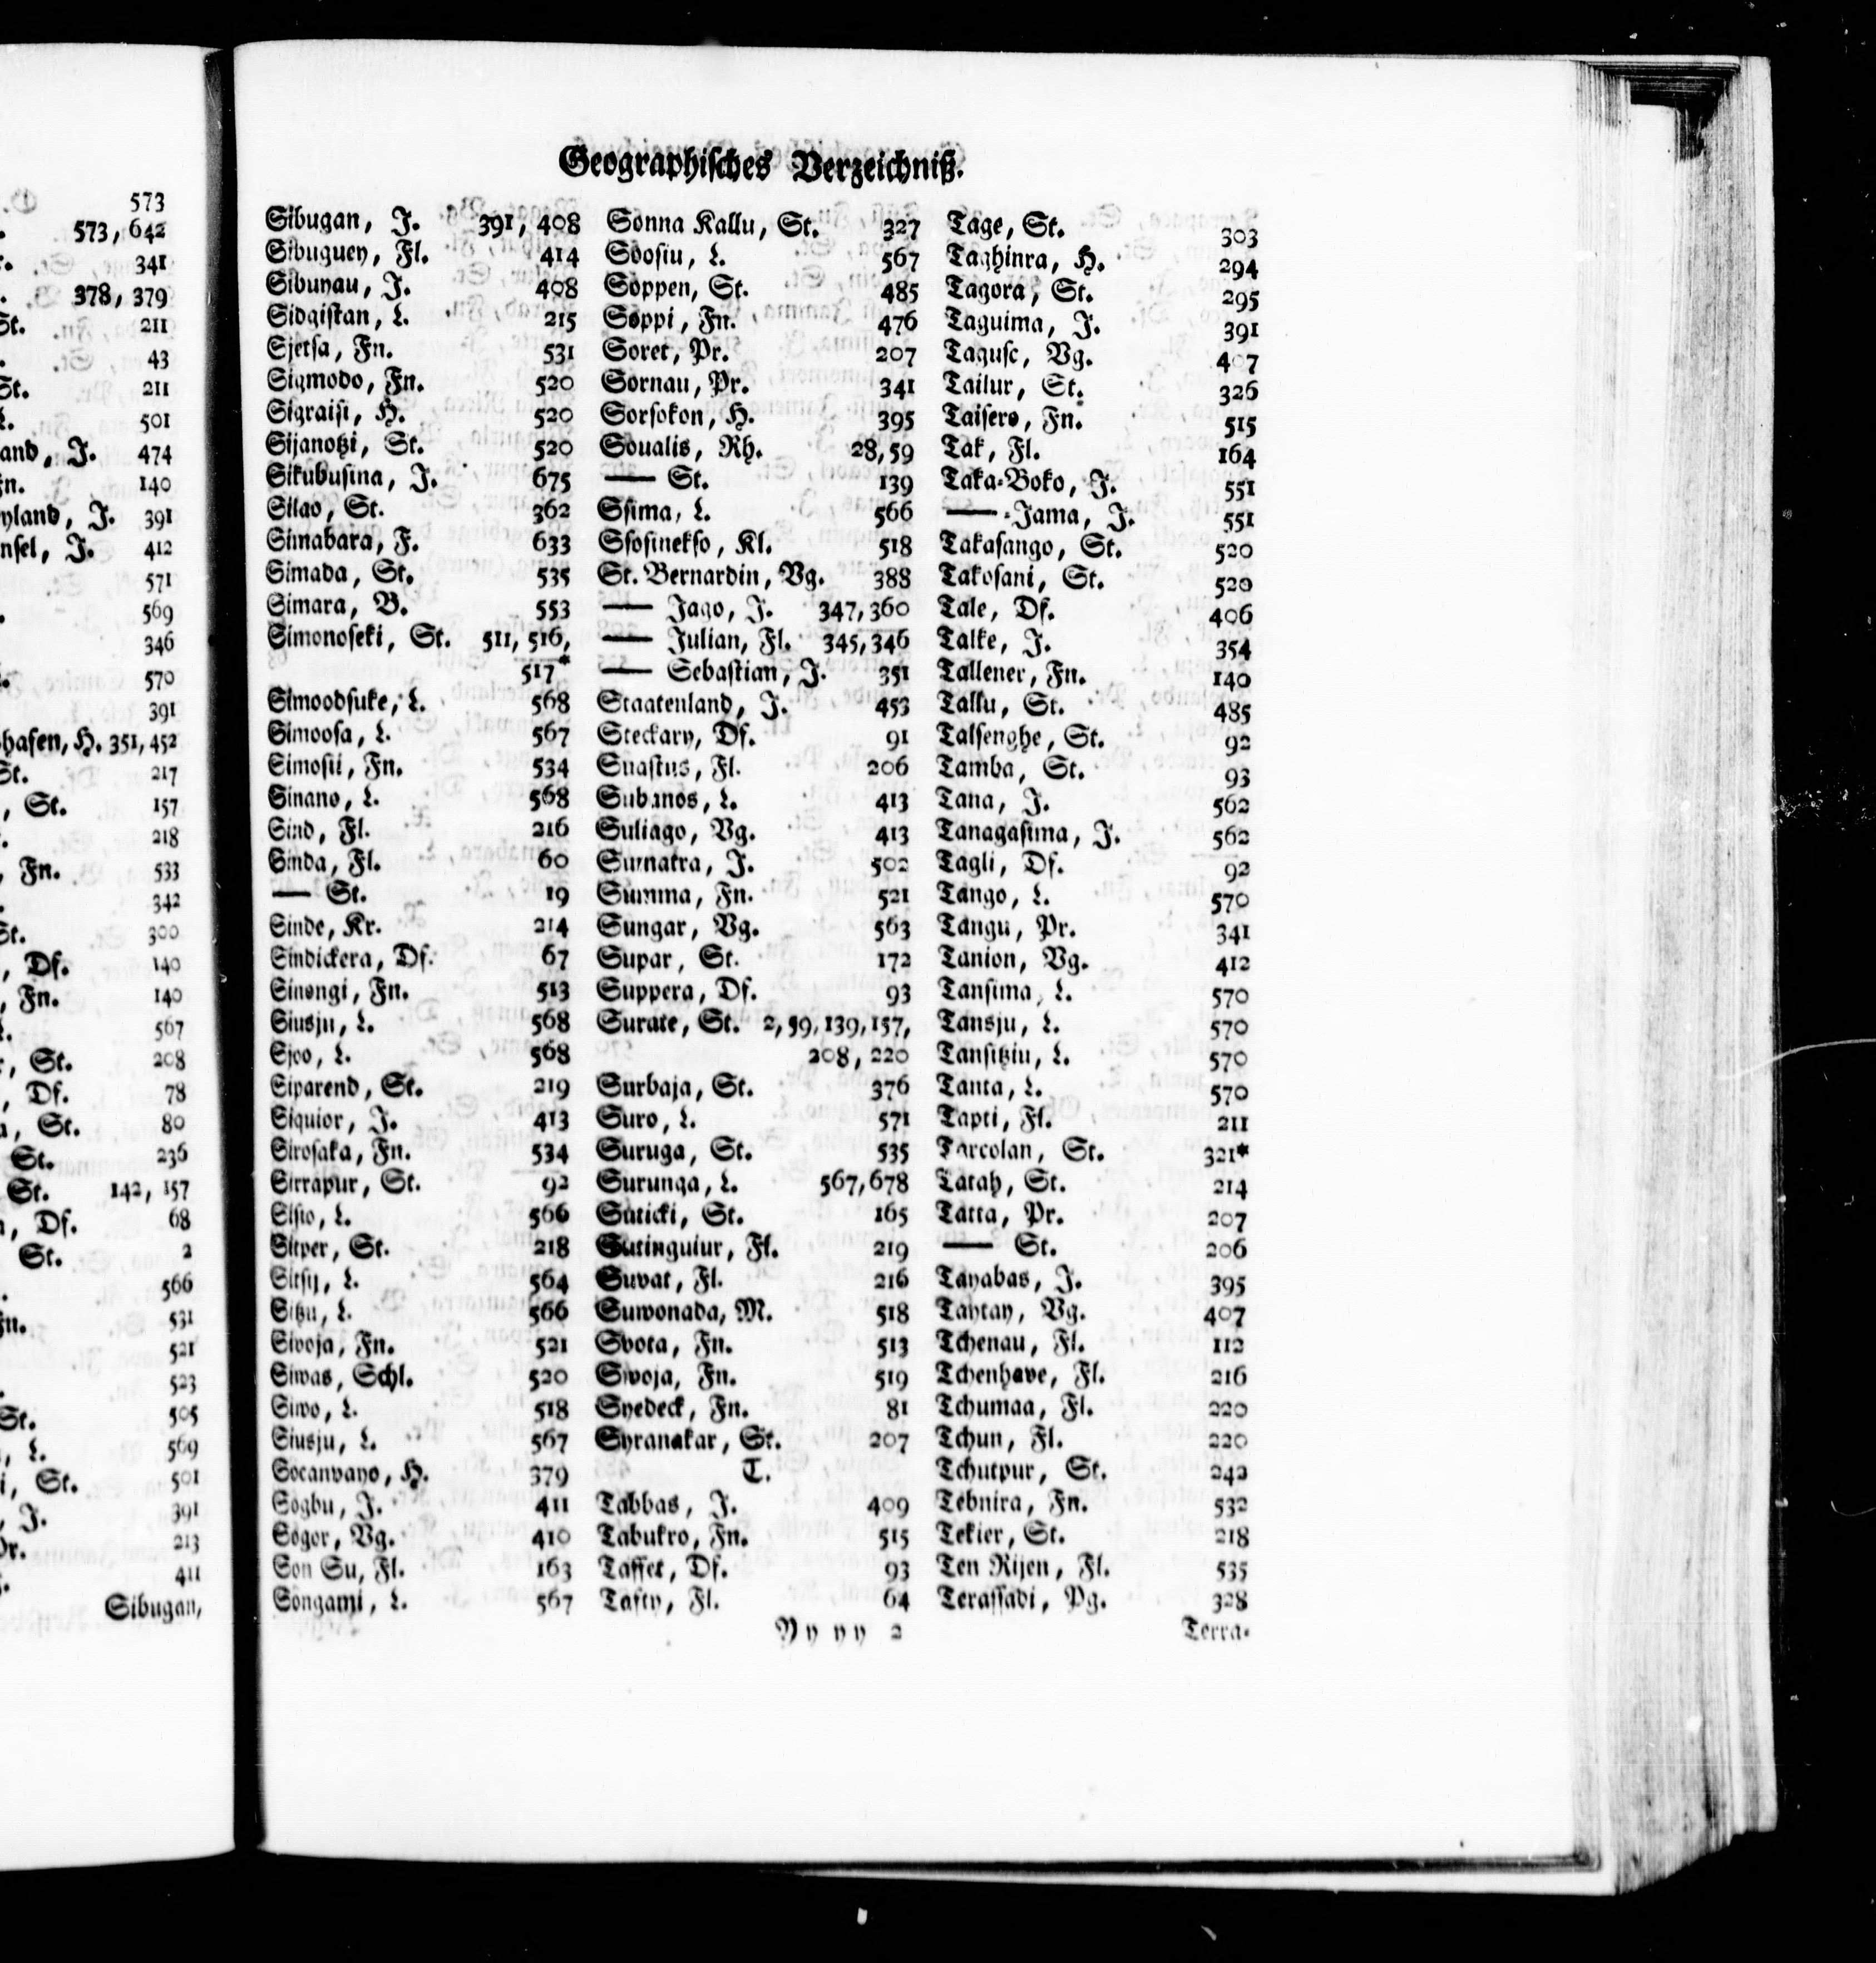 573
573, 642
341
378, 379
St. 211
43
St. 211
L. 501
and, J. 474
Fn. 140
yland, J. 391
nsel, J. 412
571
569
346
570
391
hafen, H. 351, 452
St. 217
, St. 157
218
, Fn. 533
342
St. 300
, Df. 140
, Fn. 140
567
, St. 208
, Df. 78
a, St. 80
St. 236
St. 142, 157
, Df. 68
St. 2
566
Fn. 531
521
523
St. 505
, L. 569
i, St. 501
, J. 391
Pr. 213
411
Sibugan,
Geographisches Verzeichniß.
Sibugan, J. 391, 408
Sibuguey, Fl. 414
Sibuyau, J. 408
Sidgistan, L. 215
Sjetsa, Fn. 531
Sigmodo, Fn. 520
Sigraisi, H. 520
Sijanotzi, St. 520
Sikubusina, J. 675
Silao, St. 362
Simabara, F. 633
Simada, St. 535
Simara, B. 553
Simonoseki, St. 511, 516,
517*
Simoodsuke, L. 568
Simoosa, L. 567
Simosii, Fn. 534
Sinano, L. 568
Sind, Fl. 216
Sinda, Fl. 60
— St. 19
Sinde, Kr. 214
Sindickera, Df. 67
Sinongi, Fn. 513
Siusju, L. 568
Sjoo, L. 568
Siparend, St. 219
Siquior, J. 413
Sirosaka, Fn. 534
Sirrapur, St. 92
Sisio, L. 566
Sitper, St. 218
Sitsij, L. 564
Sitzu, L. 566
Sivoja, Fn. 521
Siwas, Schl. 520
Siwo, L. 518
Siusju, L. 567
Socanvayo, H. 379
Sogbu, J. 411
Sogor, Vg. 410
Son Su, Fl. 163
Songami, L. 567
Sonna Kallu, St. 327
Soosiu, L. 567
Soppen, St. 485
Soppi, Fn. 476
Soret, Pr. 207
Sornau, Pr. 341
Sorsokon, H. 395
Soualis, Rh. 28, 59
— St. 139
Ssima, L. 566
Ssosinekso, Kl. 518
St. Bernardin, Vg. 388
— Jago, J. 347, 360
— Julian, Fl. 345, 346
— Sebastian, J. 351
Staatenland, J. 453
Steckary, Df. 91
Suastus, Fl. 206
Subanos, L. 413
Suliago, Vg. 413
Sumatra, J. 502
Summa, Fn. 521
Sungar, Vg. 563
Supar, St. 172
Suppera, Df. 93
Surate, St. 2, 59, 139, 157,
208, 220
Surbaja, St. 376
Suro, L. 571
Suruga, St. 535
Surunga, L. 567, 678
Suticki, St. 165
Sutinguiur, Fl. 219
Suvat, Fl. 216
Suwonada, M. 518
Svota, Fn. 513
Swoja, Fn. 519
Syedeck, Fn. 81
Syranakar, St. 207
T.
Tabbas, J. 409
Tabukro, Fn. 515
Taffet, Df. 93
Tafty, Fl. 64
Tage, St. 303
Taghinra, H. 294
Tagora, St. 295
Taguima, J. 391
Tagusc, Vg. 407
Tailur, St. 326
Taisero, Fn. 515
Tak, Fl. 164
Taka-Boko, J. 551
— -Jama, J. 551
Takasango, St. 520
Takosani, St. 520
Tale, Df. 406
Talke, J. 354
Tallener, Fn. 140
Tallu, St. 485
Talsenghe, St. 92
Tamba, St. 93
Tana, J. 562
Tanagasima, J. 562
Tagli, Df. 92
Tango, L. 570
Tangu, Pr. 341
Tanion, Vg. 412
Tansima, L. 570
Tansju, L. 570
Tansitziu, L. 570
Tanta, L. 570
Tapti, Fl. 211
Tarcolan, St. 321*
Tatah, St. 214
Tatta, Pr. 207
— St. 206
Tayabas, J. 395
Taytay, Vg. 407
Tchenau, Fl. 112
Tchenhave, Fl. 216
Tchumaa, Fl. 220
Tchun, Fl. 220
Tchutpur, St. 242
Tebnira, Fn. 532
Tekier, St. 218
Ten Rijen, Fl. 535
Terassadi, Pg. 328
Yy yy 2
Terra-